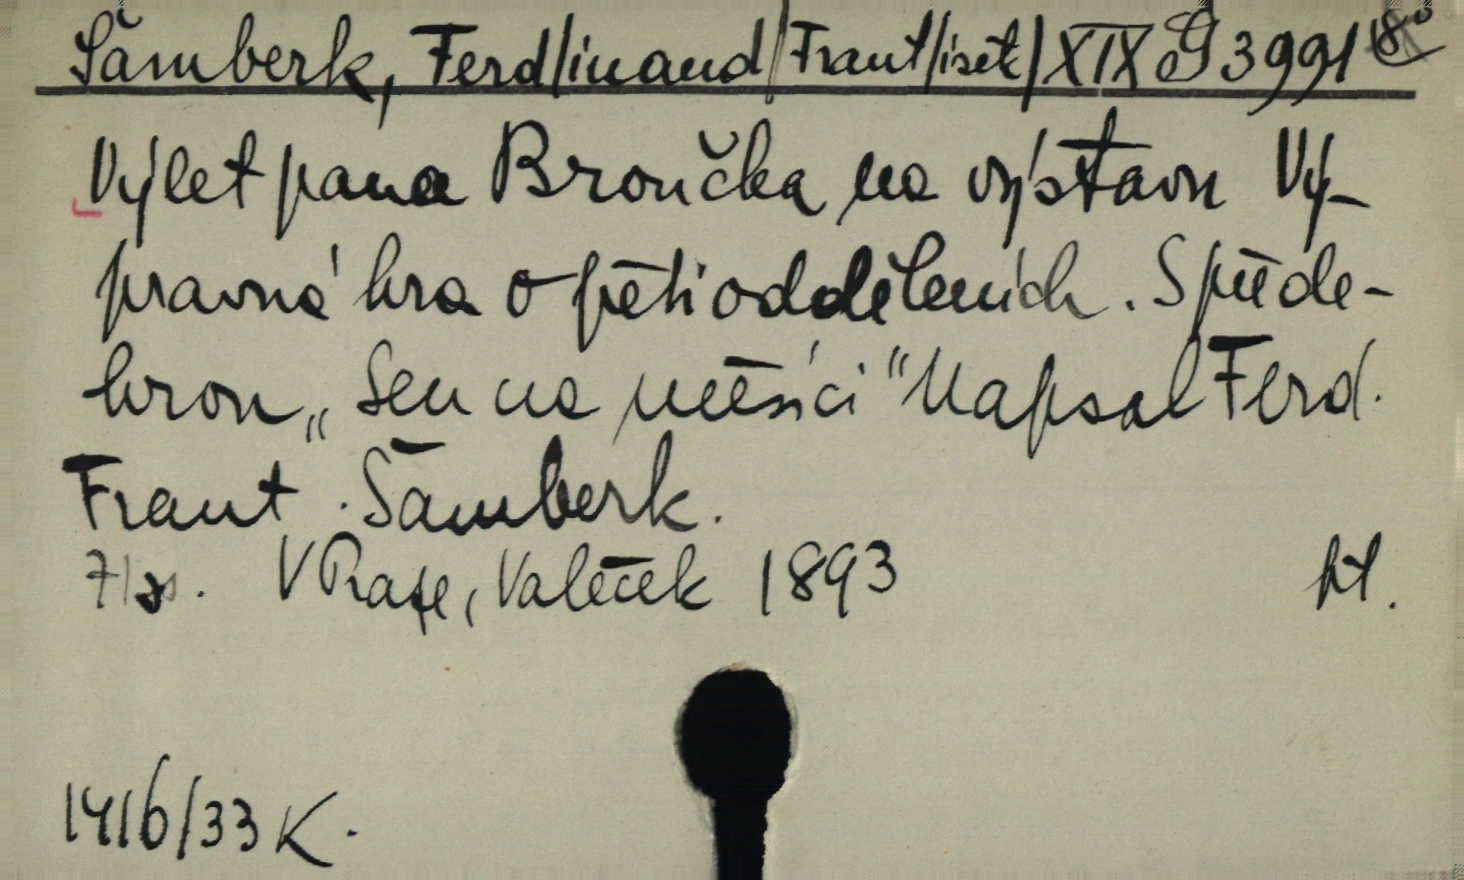 Šamberk, Ferd/inand/ Frant/išek/ XIX G 3991 8°
Výlet pana Broučka na výstavu Vý-
pravná hra o pěti odděleních. S přede-
hrou „Sen na měsíci“ Napsal Ferd.
Frant. Šamberk.
V Praze, Valeček 1893
1416/33 K.